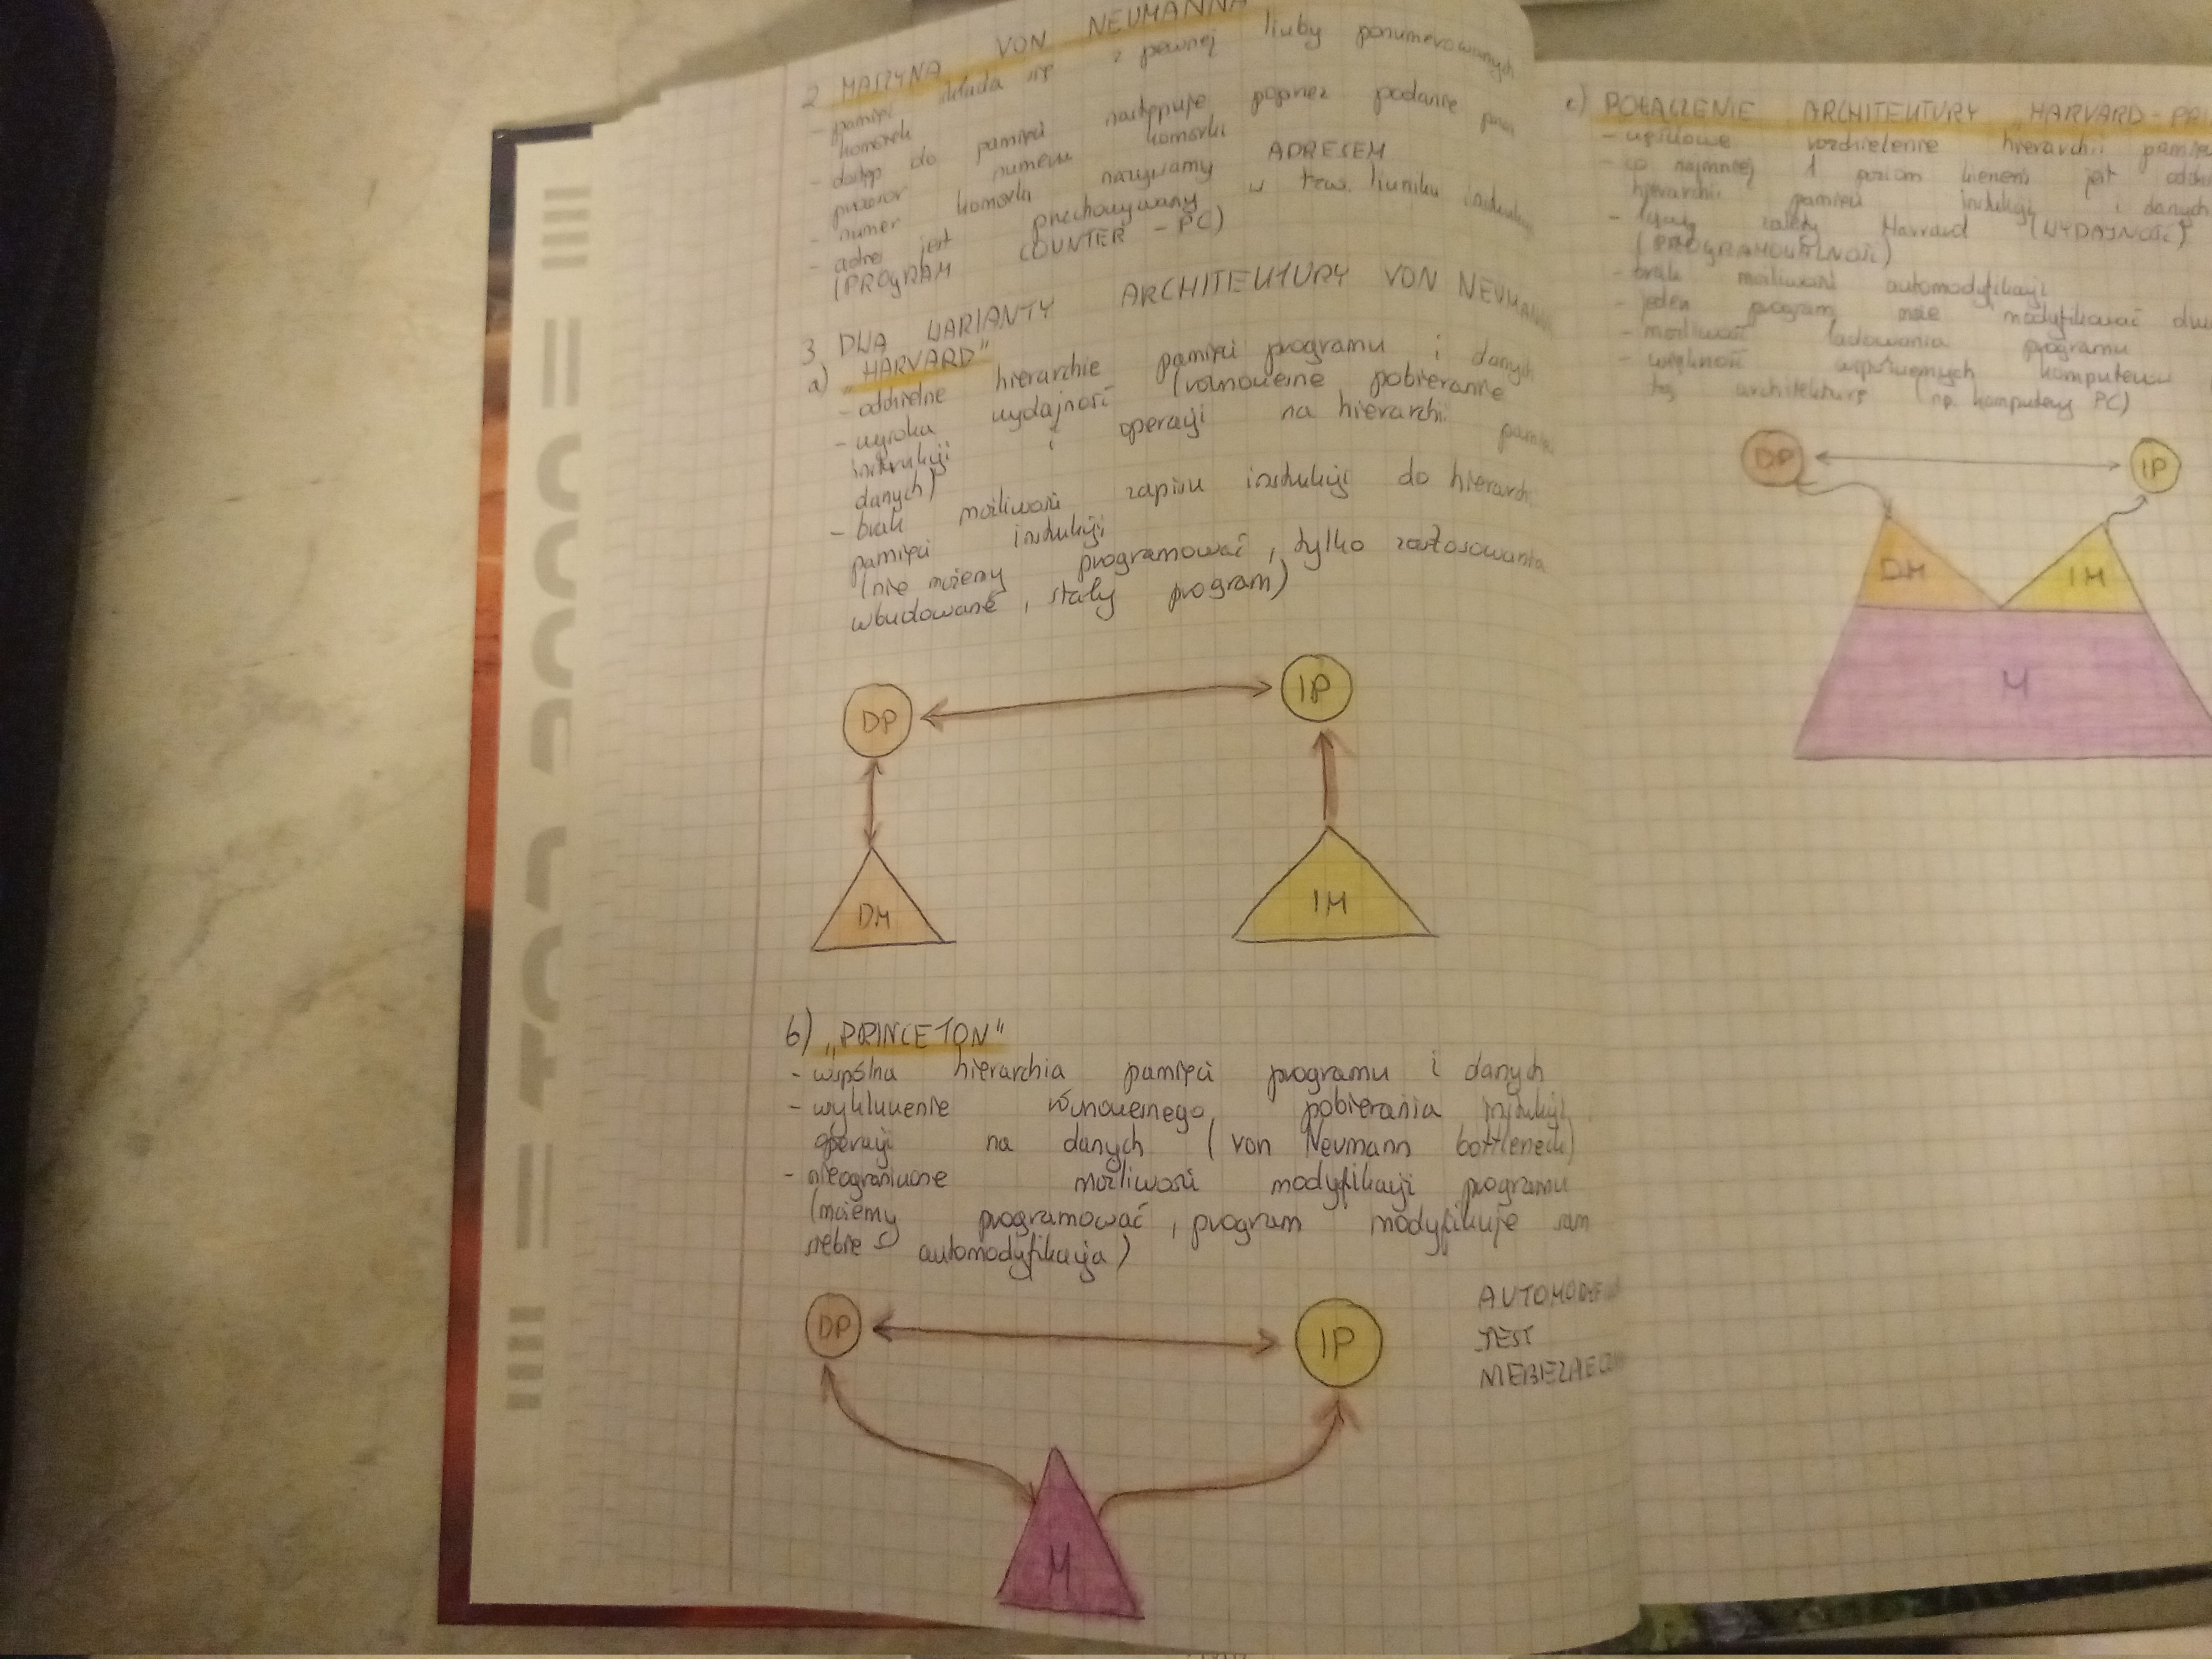 2. MASZYNA VON NEUMANNA
- pamięć składa się z pewnej liczby ponumerowanych
komórek
- dostęp do pamięci następuje poprzez podanie przez
procesor numeru komórki
- numer komórki nazywamy ADRESEM
- adres jest przechowywany w tzw. liczniku
(PROGRAM COUNTER - PC)
3. DWA WARIANTY ARCHITEKTURY VON NEUMANN
a) „HARVARD"
- oddzielne hierarchie pamięci programu i danych
- wysoka wydajność (równoczesne pobieranie
instrukcji i operacji na hierarchii
danych)
- brak możliwości zapisu instrukcji do hierarch
pamięci instrukcji
(nie możemy programować, tylko zastosowania
wbudowane, stały program)
DP IP
DM IM
b) „PRINCETON"
- wspólna hierarchia pamięci programu i danych
- wykluczenie równoczesnego pobierania instrukcji
operacji na danych (von Neumann bottleneck)
- nieograniczone możliwości modyfikacji programu
(możemy programować, program modyfikuje sam
siebie automodyfikacja)
DP IP
M
AUTOMODYF
JEST
NIEBEZPIECZ
c) POŁĄCZENIE ARCHITEKTURY „HARVARD-PRI
- częściowe rozdzielenie hierarchii pamięci
- co najmniej 1 poziom jest
hierarchii pamięci instrukcji i danych
- łączy zalety Harvard (WYDAJNOŚĆ)
(PROGRAMOWALNOŚĆ)
- brak możliwości automodyfikacji
- jeden program może modyfikować
- możliwość ładowania programu
- większość współczesnych komputerów
tej architektury (np. komputery PC)
DP IP
DM IM
M